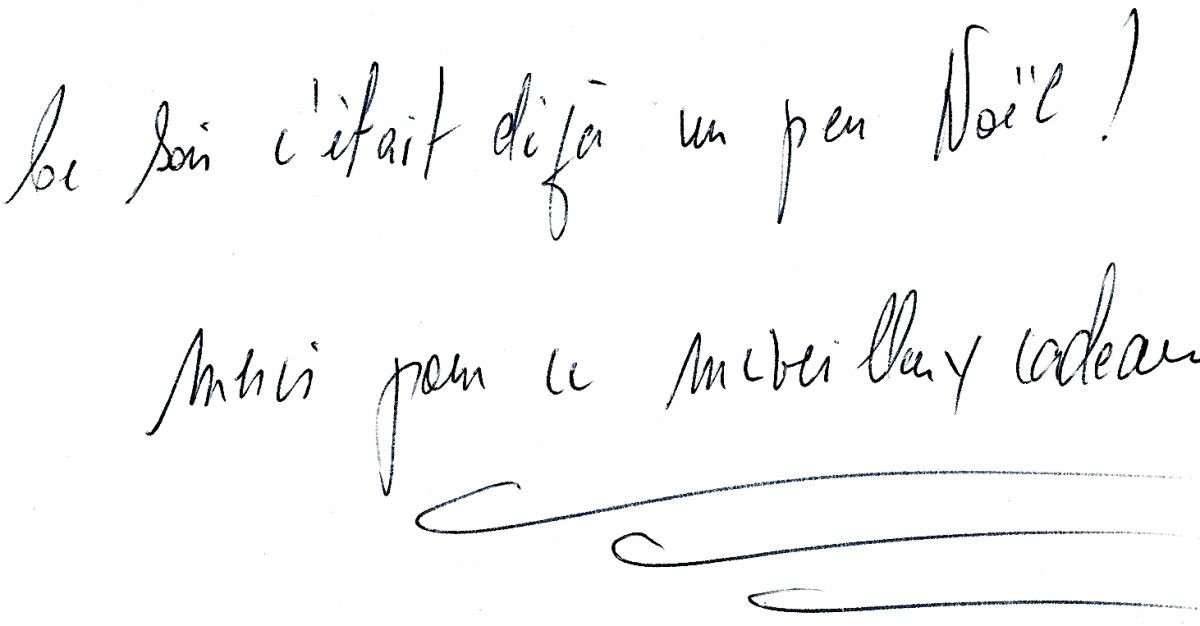 Ce soir c'était déjà un peu Noël !
Merci pour ce merveilleux cadeau